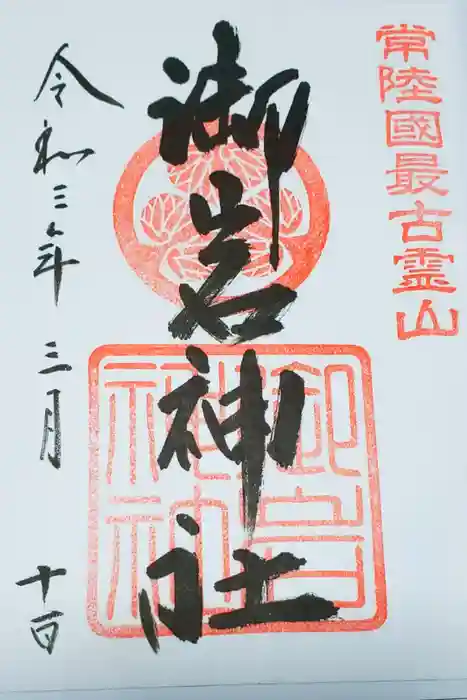 常陸國最古霊山
御岩神社
御岩神社
令和三年三月十日